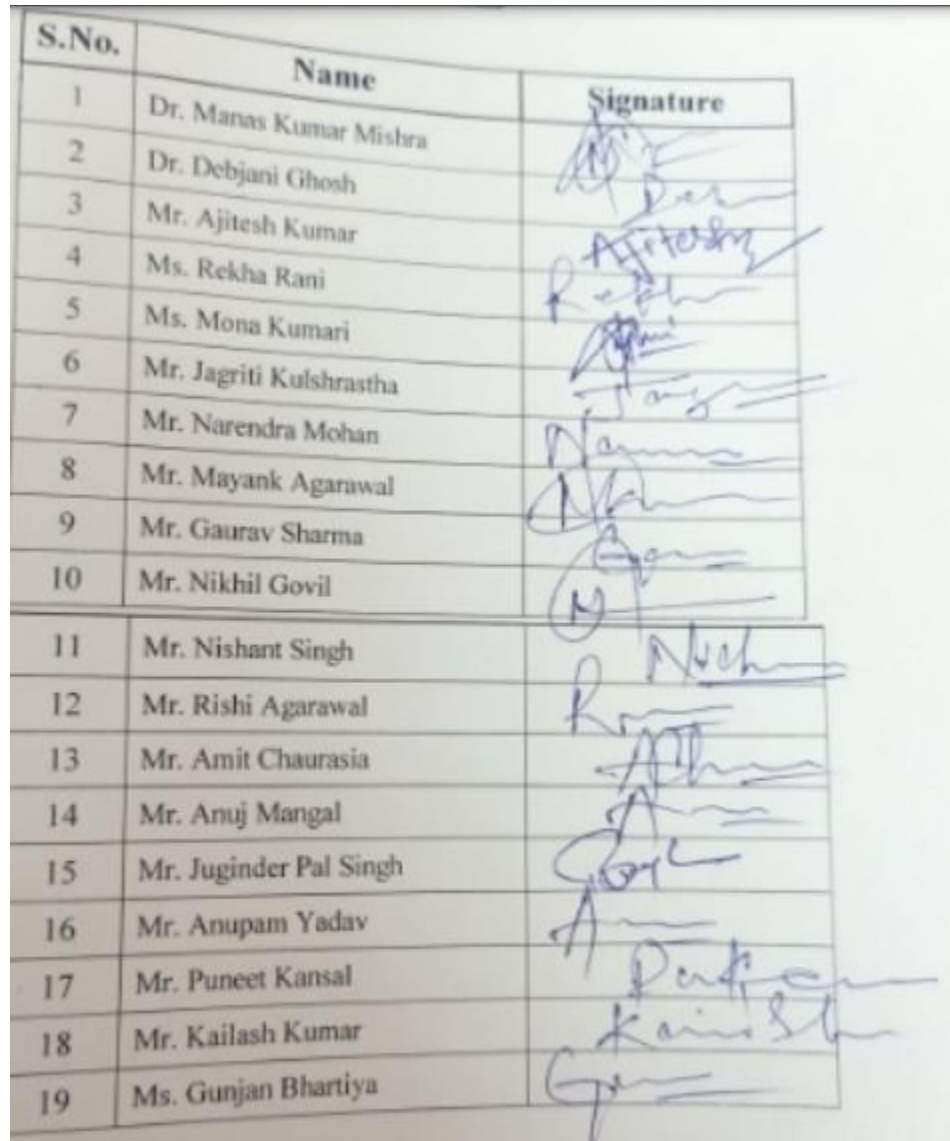 S.No. Name Signature
1 Dr. Manas Kumar Mishra
2 Dr. Debjani Ghosh
3 Mr. Ajitesh Kumar
4 Ms. Rekha Rani
5 Ms. Mona Kumari
6 Mr. Jagriti Kulshrastha
7 Mr. Narendra Mohan
8 Mr. Mayank Agarawal
9 Mr. Gaurav Sharma
10 Mr. Nikhil Govil
11 Mr. Nishant Singh
12 Mr. Rishi Agarawal
13 Mr. Amit Chaurasia
14 Mr. Anuj Mangal
15 Mr. Juginder Pal Singh
16 Mr. Anupam Yadav
17 Mr. Puneet Kansal
18 Mr. Kailash Kumar
19 Ms. Gunjan Bhartiya